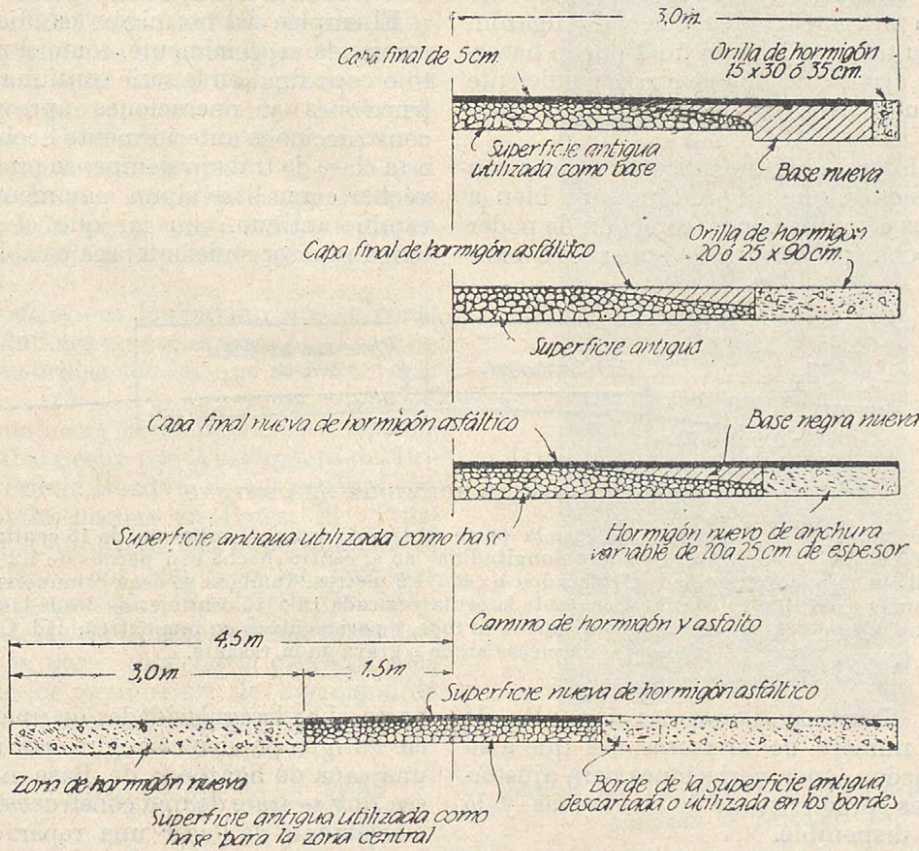 3,0m.
Capa final de 5cm.
Orilla de hormigón
15 x 30 ó 35cm.
Superficie antigua
utilizada como base
Base nueva
Capa final de hormigón asfáltico
Orilla de hormigón
20 ó 25 x 90cm.
Superficie antigua
Capa final nueva de hormigón asfáltico
Base negra nueva
Superficie antigua utilizada como base
Hormigón nuevo de anchura
variable de 20 a 25cm de espesor
Camino de hormigón y asfalto
4,5m
3,0m
1,5m
Superficie nueva de hormigón asfáltico
Zona de hormigón nueva
Superficie antigua utilizada como
base para la zona central
Borde de la superficie antigua
descartada o utilizada en los bordes